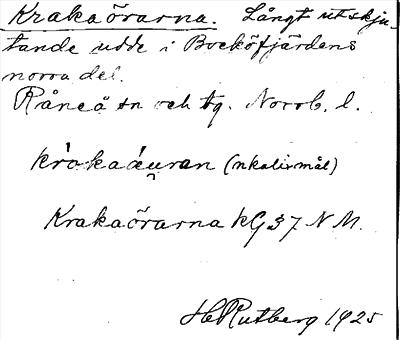 Krakaörarna. Långt utskju-
tande udde i Bocköfjärdens
norra del.
Råneå sn och tg. Norrb. l.
kràkaáuran (nkalixmål)
Krakaörarna kG 37 N M.
HRutberg 1925